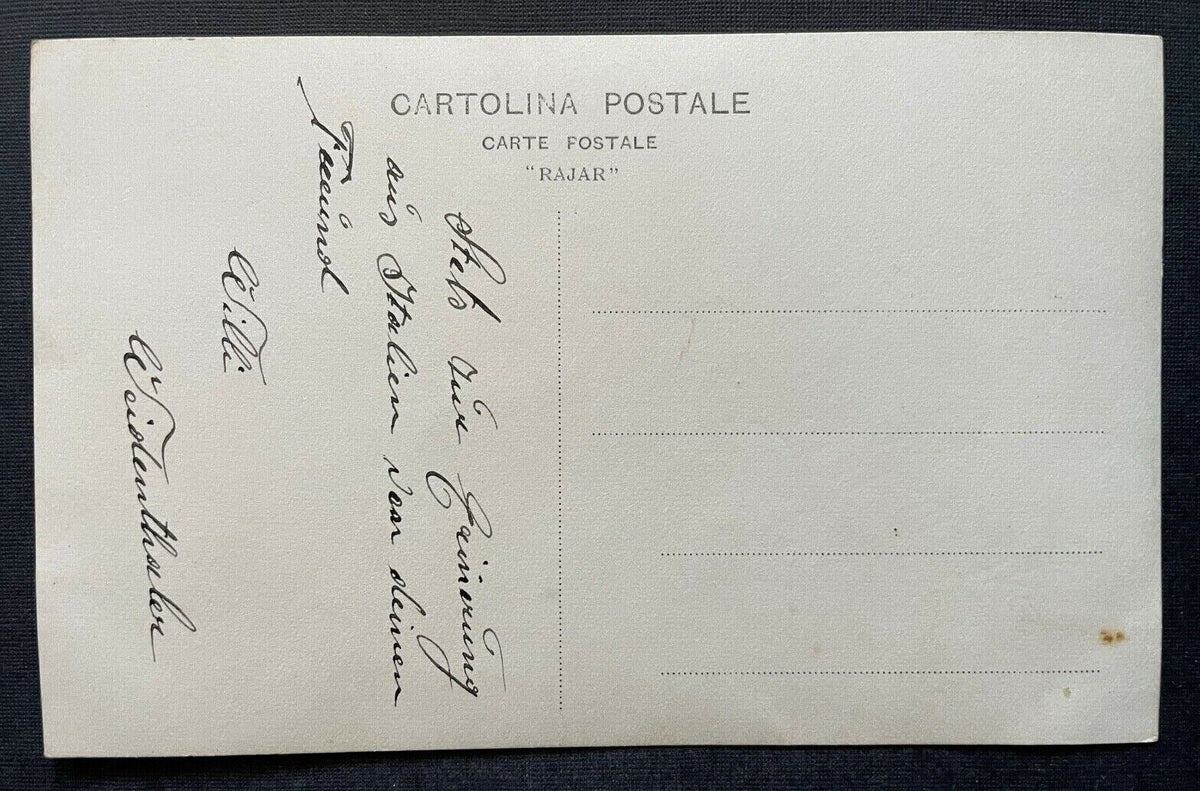 CARTOLINA POSTALE
CARTE POSTALE
"RAJAR"
Stets zur Erinnerung
aus Italien von deinen
Freund
Willi
Weidenthaler